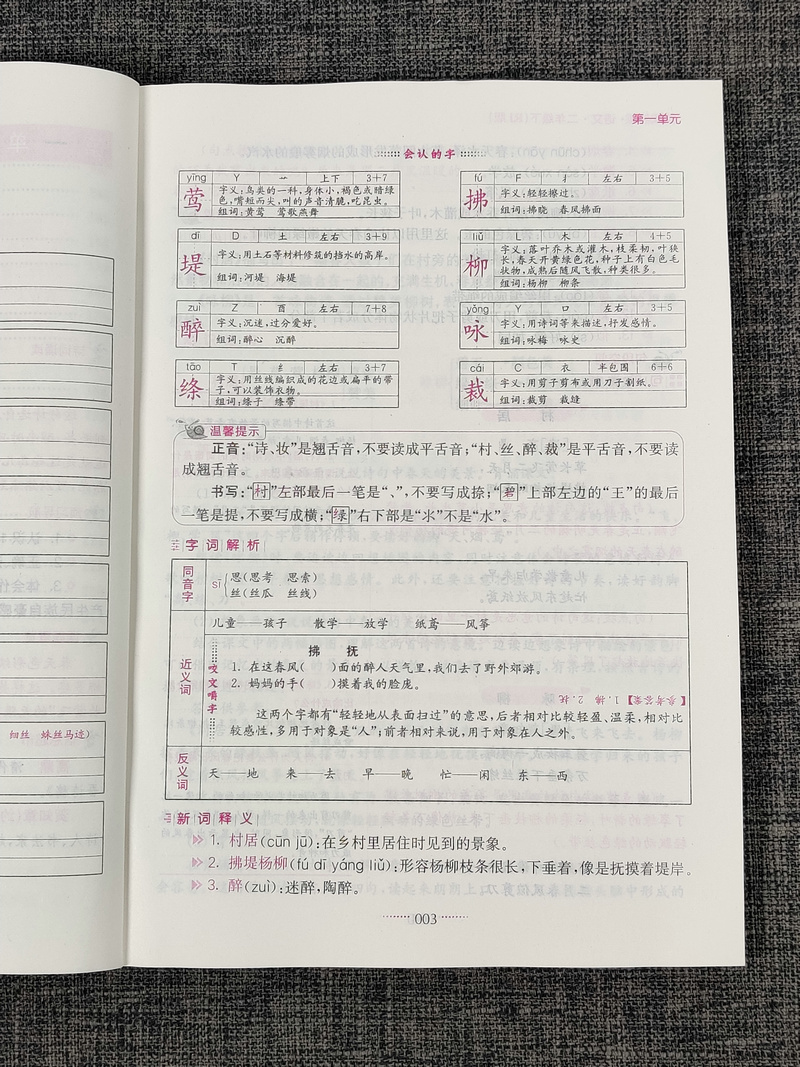 第一单元
会认的字
yīng Y 艹 上下 3+7
莺 字义:鸟类的一科,身体小,褐色或暗绿
色,嘴短而尖,叫的声音清脆,吃昆虫。
组词:黄莺 莺歌燕舞
fú F 扌 左右 3+5
拂 字义:轻轻擦过。
组词:拂晓 春风拂面
dī D 土 左右 3+9
堤 字义:用土石等材料修筑的挡水的高岸。
组词:河堤 海堤
liǔ L 木 左右 4+5
柳 字义:落叶乔木或灌木,枝柔韧,叶狭
长,春天开黄绿色花,种子上有白色毛
状物,成熟后随风飞散,种类很多。
组词:杨柳 柳条
zuì Z 酉 左右 7+8
醉 字义:沉迷,过分爱好。
组词:醉心 沉醉
yǒng Y 口 左右 3+5
咏 字义:用诗词等来描述,抒发感情。
组词:咏梅 咏史
tāo T 纟 左右 3+7
绦 字义:用丝线编织成的花边或扁平的带
子,可以装饰衣物。
组词:绦子 绦带
cái C 衣 半包围 6+6
裁 字义:用剪子剪布或用刀子割纸。
组词:裁剪 裁缝
温馨提示
正音:“诗、妆”是翘舌音,不要读成平舌音;“村、丝、醉、裁”是平舌音,不要读
成翘舌音。
书写:“村”左部最后一笔是“、”,不要写成捺;“碧”上部左边的“王”的最后
一笔是提,不要写成横;“绿”右下部是“氺”不是“水”。
字词解析
同音字
sī
思(思考 思索)
丝(丝瓜 丝线)
近义词
儿童——孩子 散学——放学 纸鸢——风筝
咬文嚼字
拂 抚
1. 在这春风( )面的醉人天气里,我们去了野外郊游。
2. 妈妈的手( )摸着我的脸庞。
【参考答案】1. 拂 2. 抚
这两个字都有“轻轻地从表面扫过”的意思,后者相对比较轻盈、温柔,相对比
较感性,多用于对象是“人”;前者相对来说,用于对象在人之外。
反义词
天——地 来——去 早——晚 忙——闲 东——西
新词释义
1. 村居(cūn jū):在乡村里居住时见到的景象。
2. 拂堤杨柳(fú dī yáng liǔ):形容杨柳枝条很长,下垂着,像是抚摸着堤岸。
3. 醉(zuì):迷醉,陶醉。
003
细丝 蛛丝马迹)